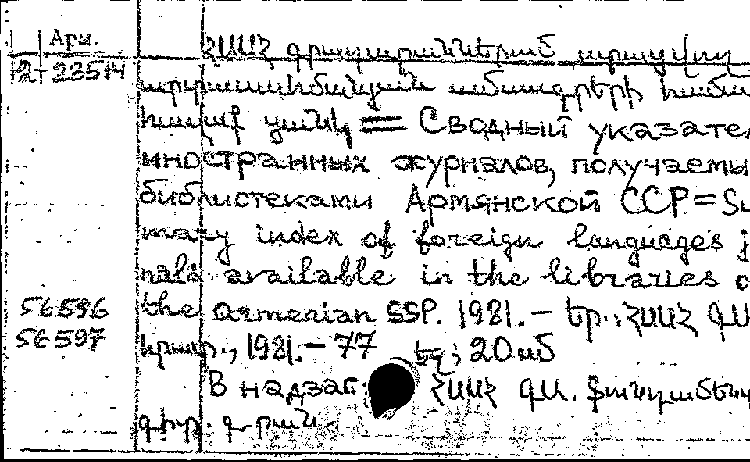 Арм.
12-23514
ՀՍՍՀ գրադարաններում ստացվող
արտասահմանյան ամսագրերի համա
հավաք ցանկ = Сводный указател
иностранных журналов, получаемы
библиотеками Армянской ССР = Su
mary index of foreign languages j
nals available in the libraries o
the Armenian SSP. 1981. — Եր.: ՀՍՍՀ ԳԱ
հրատ., 1981. — 77 եջ; 20սմ
56596
56597
В надзаг: ՀՍՍՀ ԳԱ.